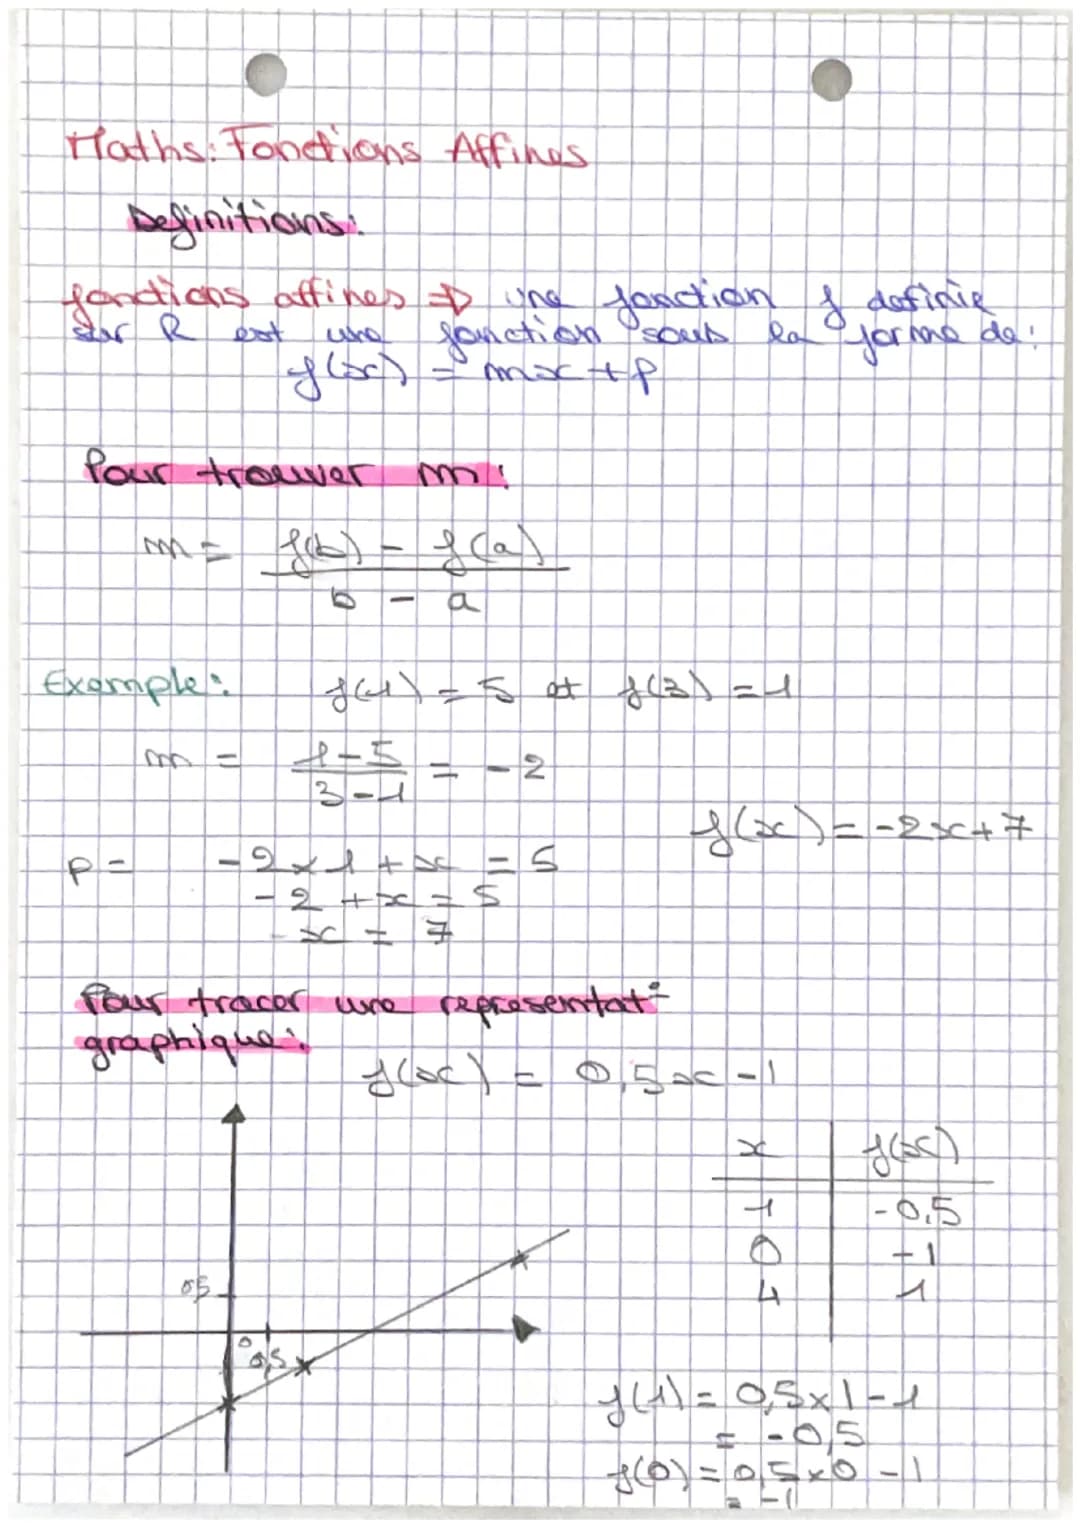 Maths: Fonctions Affines
Definitions:
fonctions affines => une fonction f definie
sur R est une fonction sous la forme de:
f(x) = mx + p
Pour trouver m:
m = f(b) - f(a)
b - a
Exemple: f(1) = 5 et f(3) = 1
m = 1-5 = -2
3-1
f(x) = -2x+7
p = -2x1 + x = 5
-2 + x = 5
x = 7
Pour tracer une representat°
graphique:
f(x) = 0,5x -1
x f(x)
1 -0,5
0 -1
4 1
0,5
0
0,5
f(1) = 0,5x1-1
= -0,5
f(0) = 0,5x0 -1
= -1